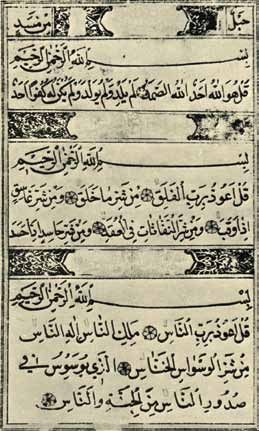 حبل مرشد
بسم الله الرحمن الرحيم
قل هو الله احد الله الصمد لم يلد ولم يولد ولم يكن له كفوا احد
بسم الله الرحمن الرحيم
قل اعوذ برب الفلق من شر ما خلق ومن شر غاسق
اذا وقب ومن شر النفاثات في العقد ومن شر حاسد اذا حسد
بسم الله الرحمن الرحيم
قل اعوذ برب الناس ملك الناس اله الناس
من شر الوسواس الخناس الذي يوسوس في
صدور الناس من الجنة والناس